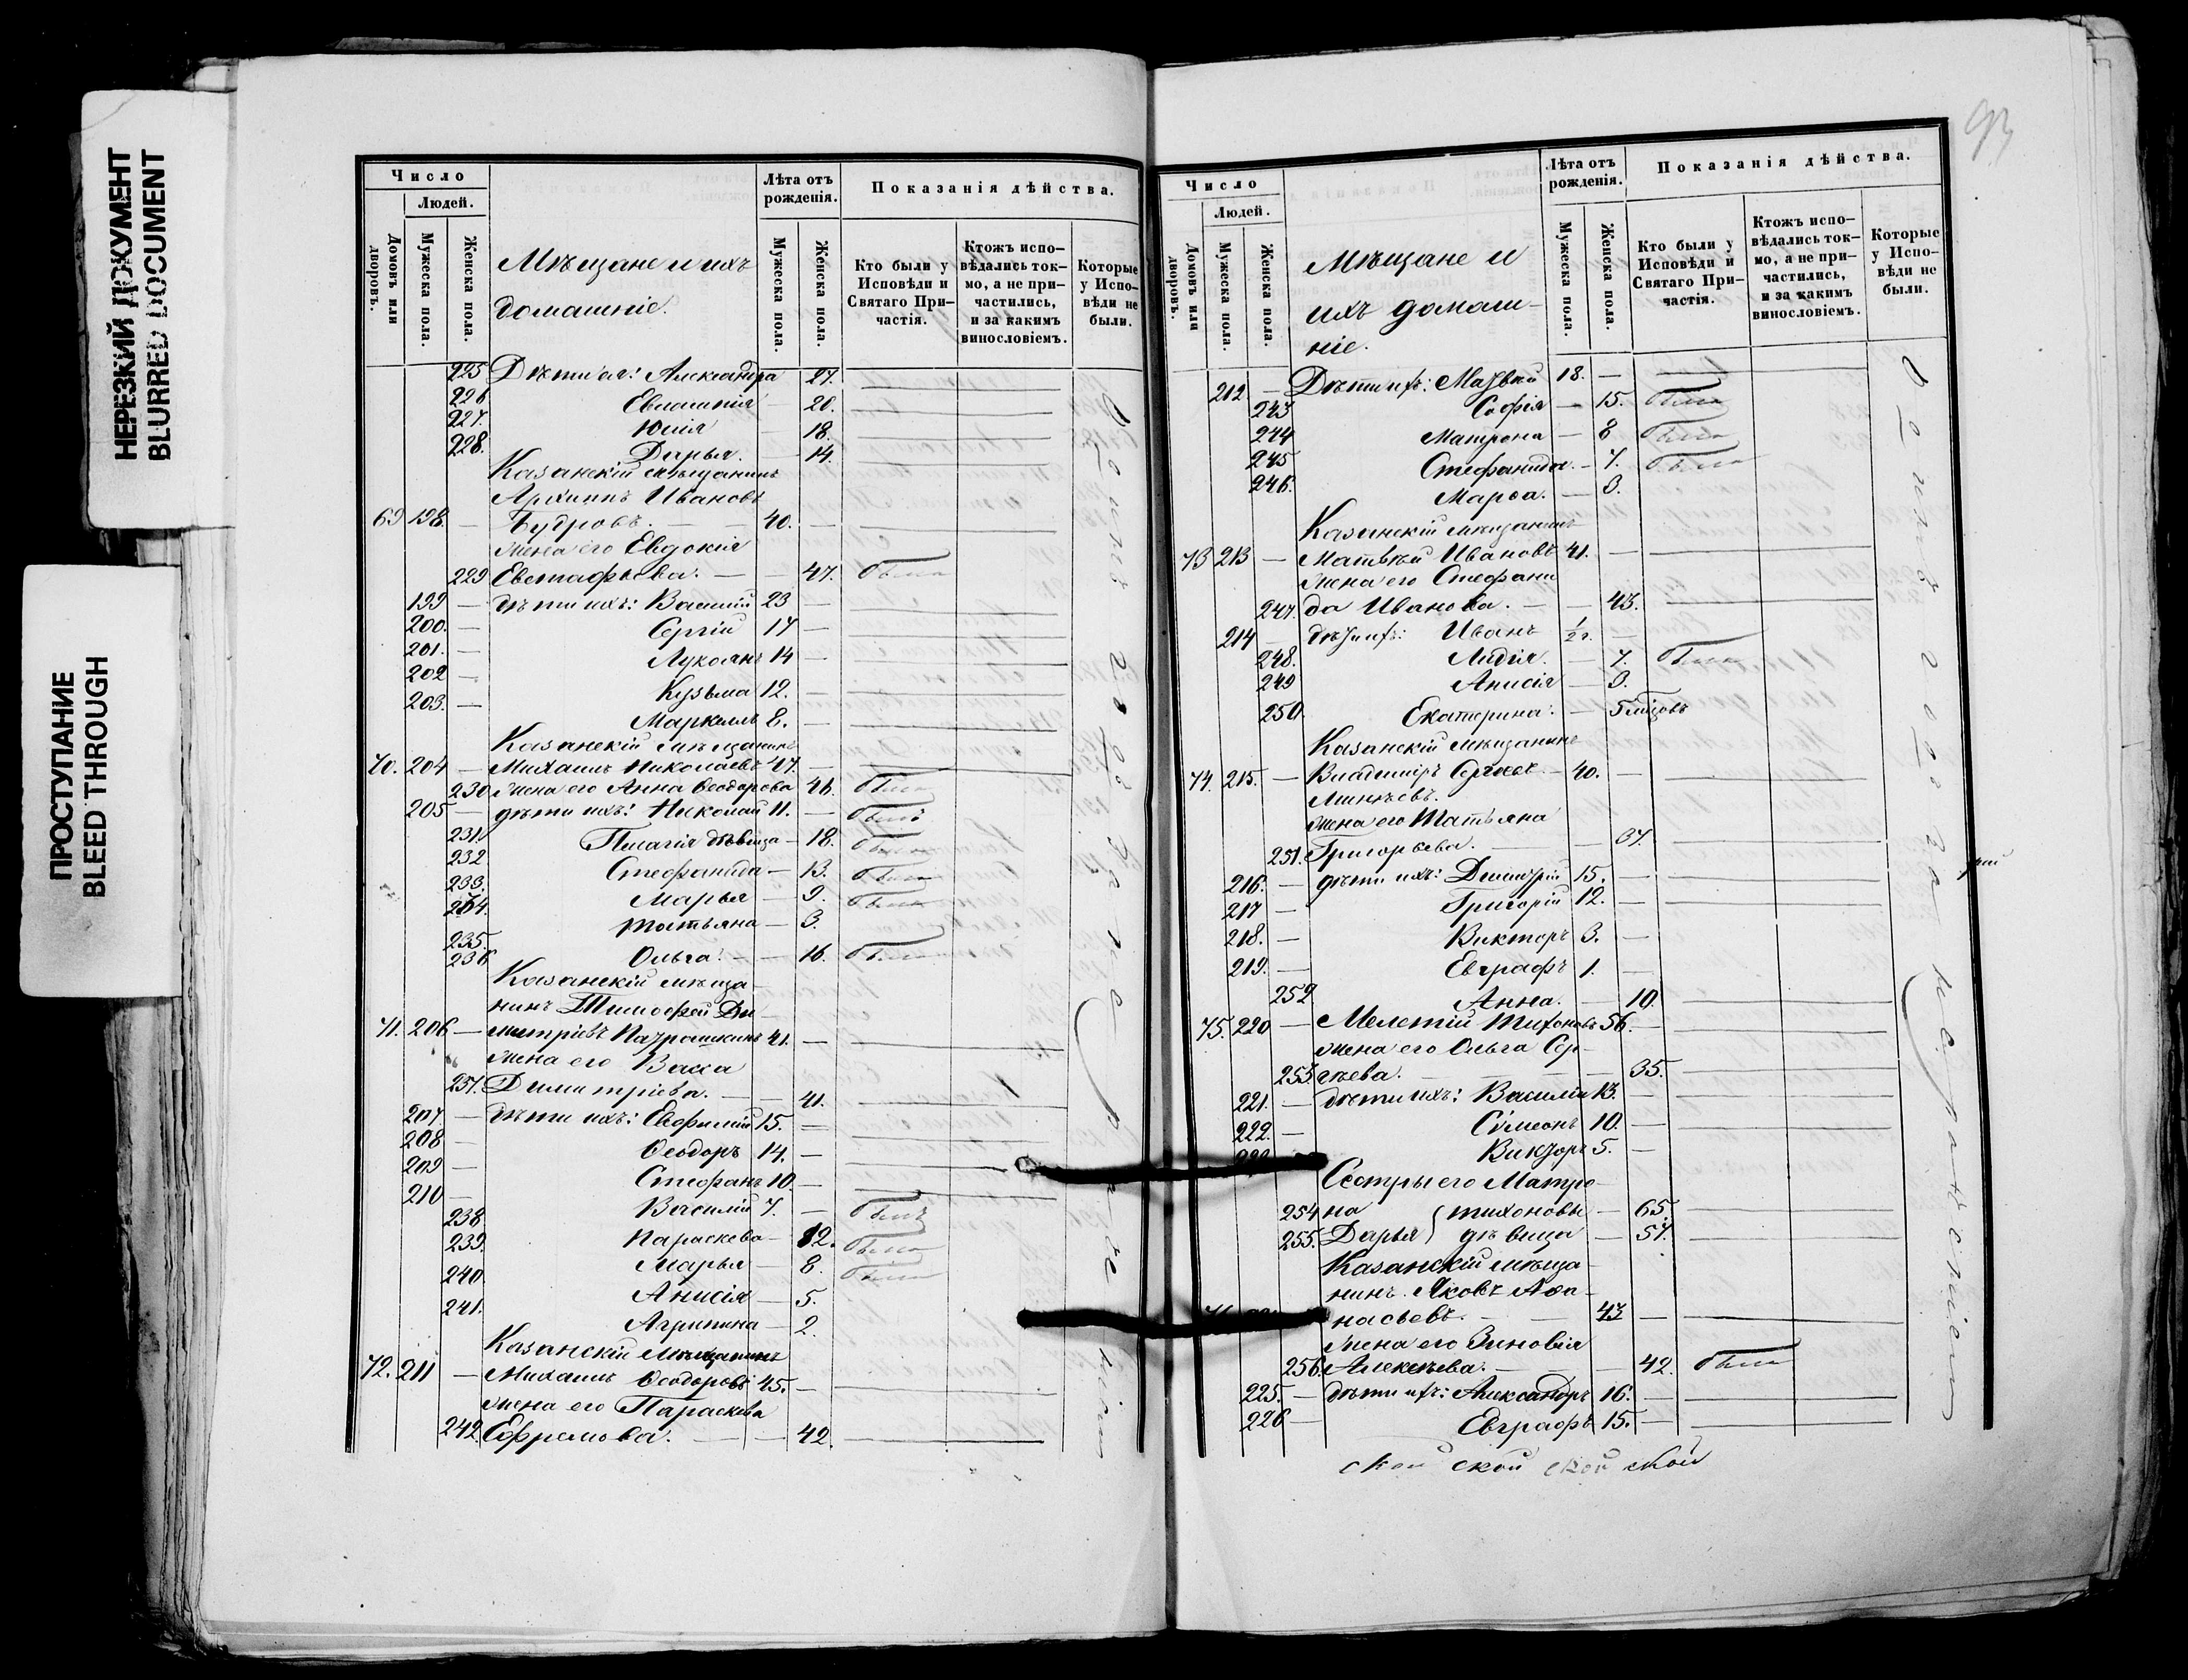 НЕРЕЗКИЙ ДОКУМЕНТ
BLURRED DOCUMENT
ПРОСТУПАНИЕ
BLEED THROUGH
Число
Людей.
Домовъ или дворовъ.
Мужеска пола.
Женска пола.
Мѣщане и ихъ
домашніе.
Лѣта отъ рожденія.
Мужеска пола.
Женска пола.
Показанія дѣйства.
Кто были у Исповѣди и Святаго Причастія.
Ктожъ исповѣдались токмо, а не причастились, и за какимъ винословіемъ.
Которые у Исповѣди не были.
225 Дѣти ея: Александра 27.
226 Евлампія — 20.
227. Юлія — 18.
228. Дарья. — 14.
Казанскій мѣщанинъ
Архиппъ Ивановъ
69 198. — 40. —
жена его Евдокія
229 Евстафьева. — — 47. была
199 — дѣти ихъ: Василій 23 —
200. — Сергій 17 —
201. — Лукоянъ 14 —
202 — Кузьма 12. —
203. — Маркеллъ 8. —
Казанскій мѣщанинъ
70. 204 — Михаилъ Николаевъ 47. —
230 жена его Анна Ѳеодорова 46. была
205 — дѣти ихъ: Николай 11. — былъ
231. Пелагія дѣвица — 18. была
232 Стефанида — 13. была
233. Марья — 9. была
234. Татьяна — 3.
235.
236 Ольга. — — 16. была
Казанскій мѣща-
нинъ Тимофей Ди-
71. 206 — митріевъ Патрашкинъ 41. —
жена его Васса
237. Димитріева. — — 41.
207. — дѣти ихъ: Евфимій 15. —
208 — Ѳеодоръ 14. —
209 — Стефанъ 10. —
210 — Василій 7. — былъ
238. Параскева — 12. была
239. Марья — 8. была
240. Анисія — 5.
241. Агрипина — 2.
Казанскій мѣщанинъ
72. 211 — Михаилъ Ѳеодоровъ 45. —
жена его Параскева
242. Ефремова. — — 42.
93
Число
Людей.
Домовъ или дворовъ.
Мужеска пола.
Женска пола.
Мѣщане и
ихъ домаш-
ніе.
Лѣта отъ рожденія.
Мужеска пола.
Женска пола.
Показанія дѣйства.
Кто были у Исповѣди и Святаго Причастія.
Ктожъ исповѣдались токмо, а не причастились, и за какимъ винословіемъ.
Которые у Исповѣди не были.
212 — Дѣти ихъ: Матвѣй 18. —
243 Софія — 15. была
244 Матрона — 8 была
245 Стефанида. — 7. была
246. Марѳа. — 3.
Казанскій мѣщанинъ
73 213 — Матвѣй Ивановъ 41. —
жена его Стефани
247. да Иванова. — — 43.
214 — дѣти ихъ: Иванъ 1/2 г. —
248. Лидія. — 7. была
249 Анисія — 3.
250. Екатерина. — 5 мѣсцовъ
Казанскій мѣщанинъ
74. 215. — Владиміръ Сергѣев — 40. —
Минѣевъ.
жена его Татьяна
251. Григорьева. — — 37.
216. — дѣти ихъ: Димитрій 15. —
217 — Григорій 12. —
218. — Викторъ 3. —
219. — Евграфъ 1. —
252 Анна. — 10.
75. 220 — Мелетій Тихоновъ 56. —
жена его Ольга Сер-
253 гѣева. — — 35.
221. — дѣти ихъ: Василій 13. —
222. — Сѵмеонъ 10. —
Викторъ 5. —
Сестры его Матро-
254 на } тихоновы — 65.
255. Дарья } дѣвица — 57.
Казанскій мѣща-
нинъ Яковъ Аѳа-
насьевъ. — — 43 —
жена его Зиновія
256. Алексѣева. — — 42. была
225. — дѣти ихъ: Александръ 16. —
226 — Евграфъ 15. —
Опущ. говѣ за нерадѣніем
ской ской ской ской